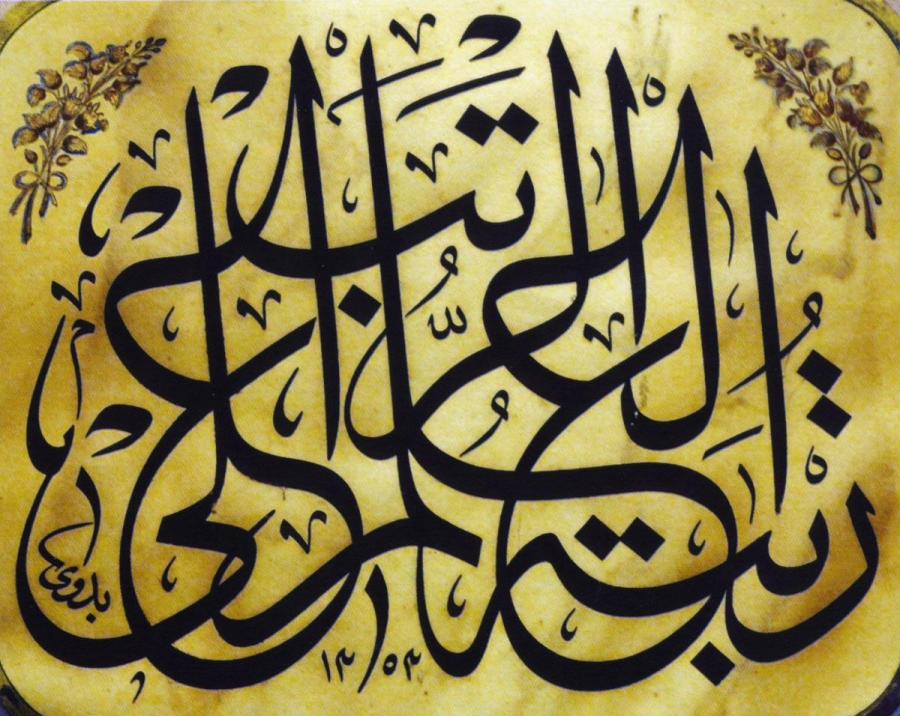 رتبة العلم أعلى الرتب
بدوي
١٣٥٣